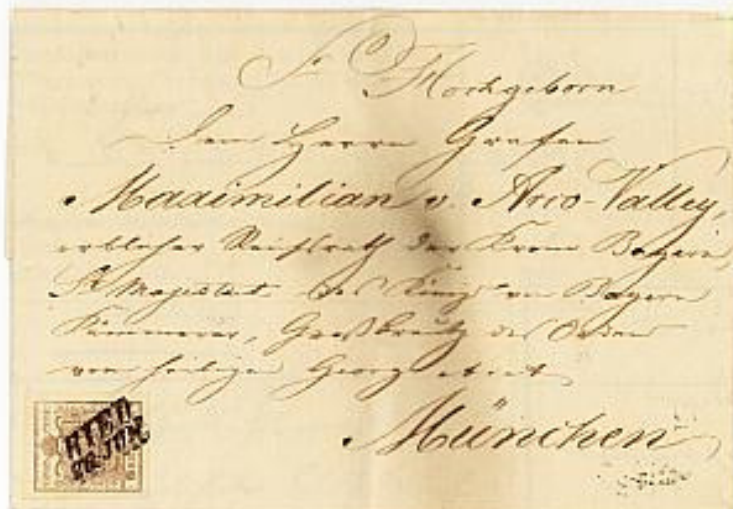 Sr Hochgeborn
Dem Herrn Grafen
Maximilian v. Arco-Valley,
erblicher Reichsrath der Krone Bayern,
Sr Majestät des Königs von Bayern
Kämmerer, Großkreutz des Ordens
vom heiligen Georg etc etc
München
RIED
26. JUN.